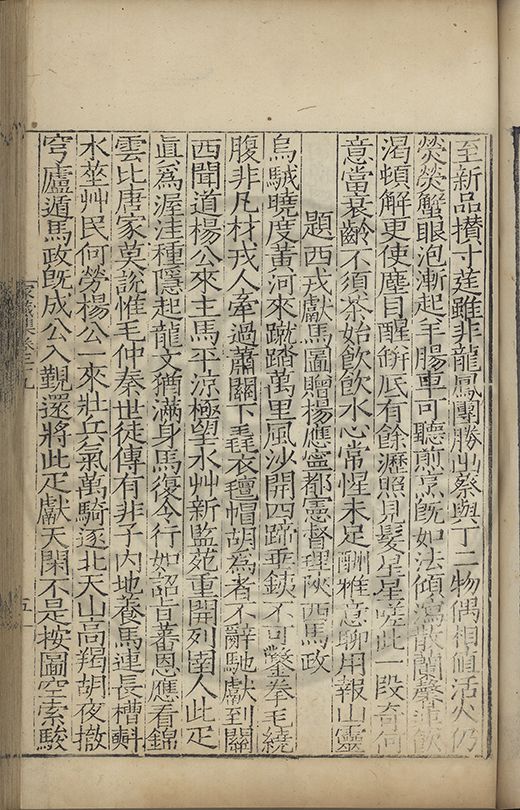 至新品攢寸莛雖非龍鳳團勝出蔡與丁二物偶相値活火仍
熒熒蟹眼泡漸起羊腸車可聽煎烹旣如法傾瀉散蘭馨飮
渴頓解更使塵目醒缾底有餘瀝照見髮星星嗟此一段奇何
意當衰齡不須茶始飮飮水心常惺未足酬雅意聊用報山靈
題西戎獻馬圖贈楊應寧都憲督理陝西馬政
烏駥曉度黃河來蹴踏萬里風沙開四蹄垂銕不可鑿拳毛繞
腹非凡材戎人牽過蕭關下毳衣氊帽胡為者不辭馳獻到關
西聞道楊公來主馬平涼極望水艸新監苑重開列圉人此疋
眞為渥洼種隱起龍文猶滿身馬復令行如詔旨蕃恩應看錦
雲比唐家莫說惟毛仲秦世徒傳有非子内地養馬連長槽斛
水莝艸民何勞楊公一來壯兵氣萬騎逐北天山高羯胡夜撤
穹廬遁馬政旣成公入覲還將此疋獻天閑不是按圖空索駿
五